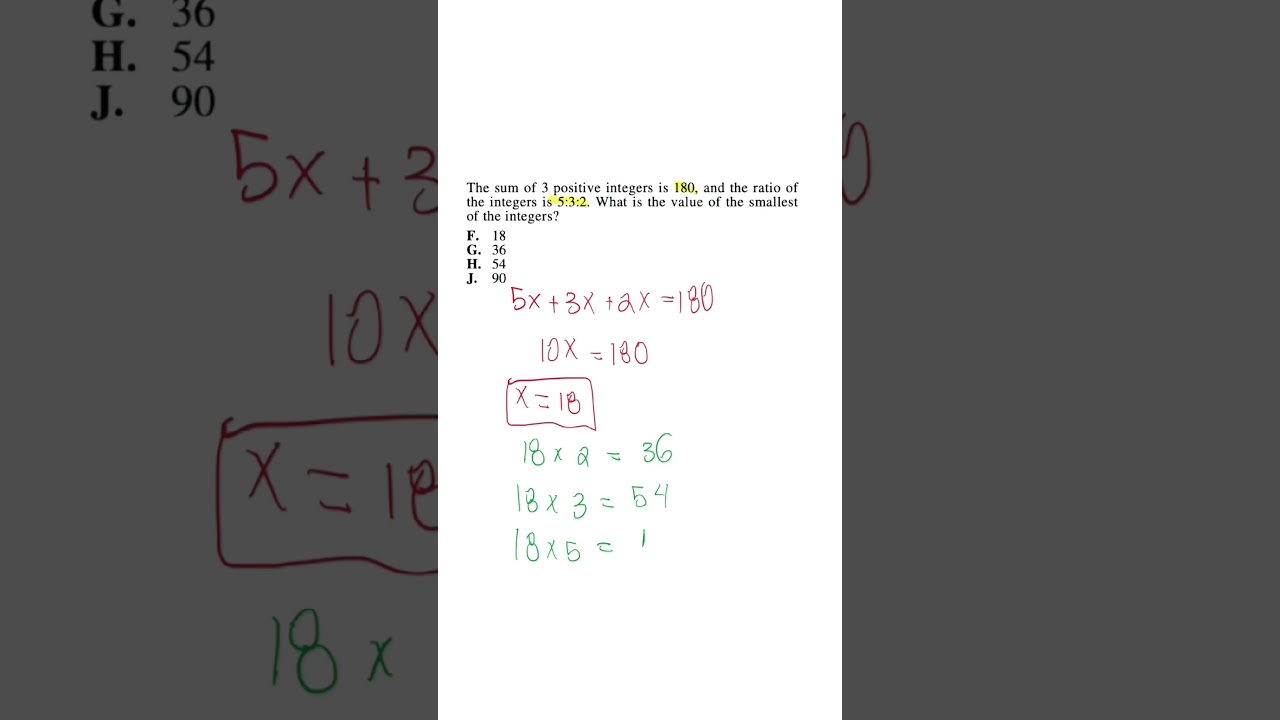 G. 36
H. 54
J. 90
5x + 3
10x
x = 18
18 x
0
The sum of 3 positive integers is 180, and the ratio of
the integers is 5:3:2. What is the value of the smallest
of the integers?
F. 18
G. 36
H. 54
J. 90
5x + 3x + 2x = 180
10x = 180
x = 18
18 x 2 = 36
18 x 3 = 54
18 x 5 =